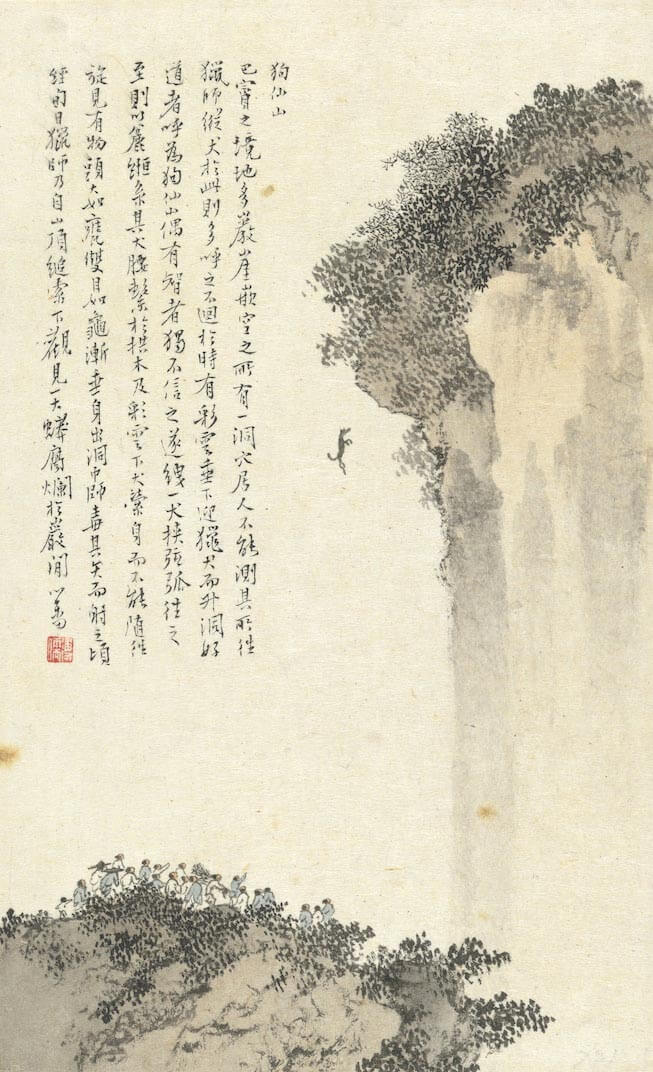 狗仙山
巴賨之境地多巖崖嵌空之所有一洞穴居人不能測其所往
獵師縱犬於此則多呼之不迴於時有彩雲垂下迎獵犬而升洞好
道者呼為狗仙山偶有智者獨不信之遂紲一犬挾弦弧往之
至則以麄絙系其犬腰繫於拱木及彩雲下犬縈身而不能隨往
旋見有物頭大如甕雙目如龜漸垂身出洞中師毒其矢而射之頃
經旬日獵師乃自山頂縋索下觀見一大蟒腐爛於巖間 心畬